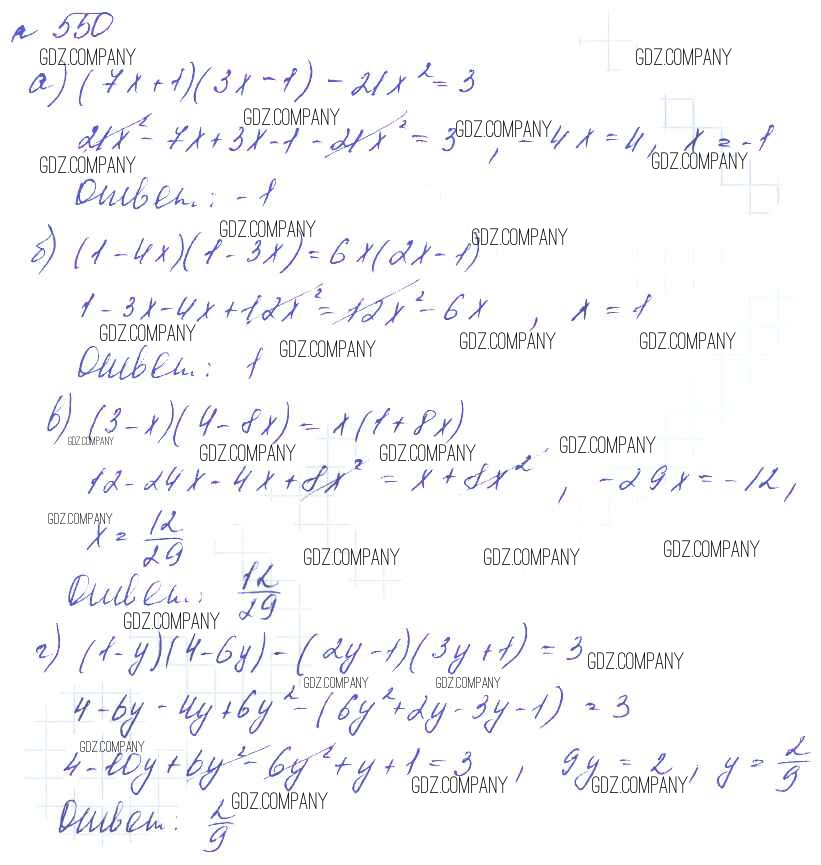 № 550
GDZ.COMPANY GDZ.COMPANY
а) (7x+1)(3x-1) - 21x² = 3
GDZ.COMPANY GDZ.COMPANY
21x² - 7x + 3x - 1 - 21x² = 3, -4x = 4, x = -1
GDZ.COMPANY GDZ.COMPANY
Ответ: -1
GDZ.COMPANY GDZ.COMPANY
б) (1-4x)(1-3x) = 6x(2x-1)
1 - 3x - 4x + 12x² = 12x² - 6x, x = 1
GDZ.COMPANY GDZ.COMPANY GDZ.COMPANY GDZ.COMPANY
Ответ: 1
в) (3-x)(4-8x) = x(1+8x)
GDZ.COMPANY GDZ.COMPANY GDZ.COMPANY GDZ.COMPANY
12 - 24x - 4x + 8x² = x + 8x², -29x = -12,
GDZ.COMPANY
x = 12/29
GDZ.COMPANY GDZ.COMPANY GDZ.COMPANY
Ответ: 12/29
GDZ.COMPANY
г) (1-y)(4-6y) - (2y-1)(3y+1) = 3
GDZ.COMPANY
GDZ.COMPANY GDZ.COMPANY
4 - 6y - 4y + 6y² - (6y² + 2y - 3y - 1) = 3
GDZ.COMPANY
4 - 10y + 6y² - 6y² + y + 1 = 3, 9y = 2, y = 2/9
GDZ.COMPANY GDZ.COMPANY
GDZ.COMPANY
Ответ: 2/9